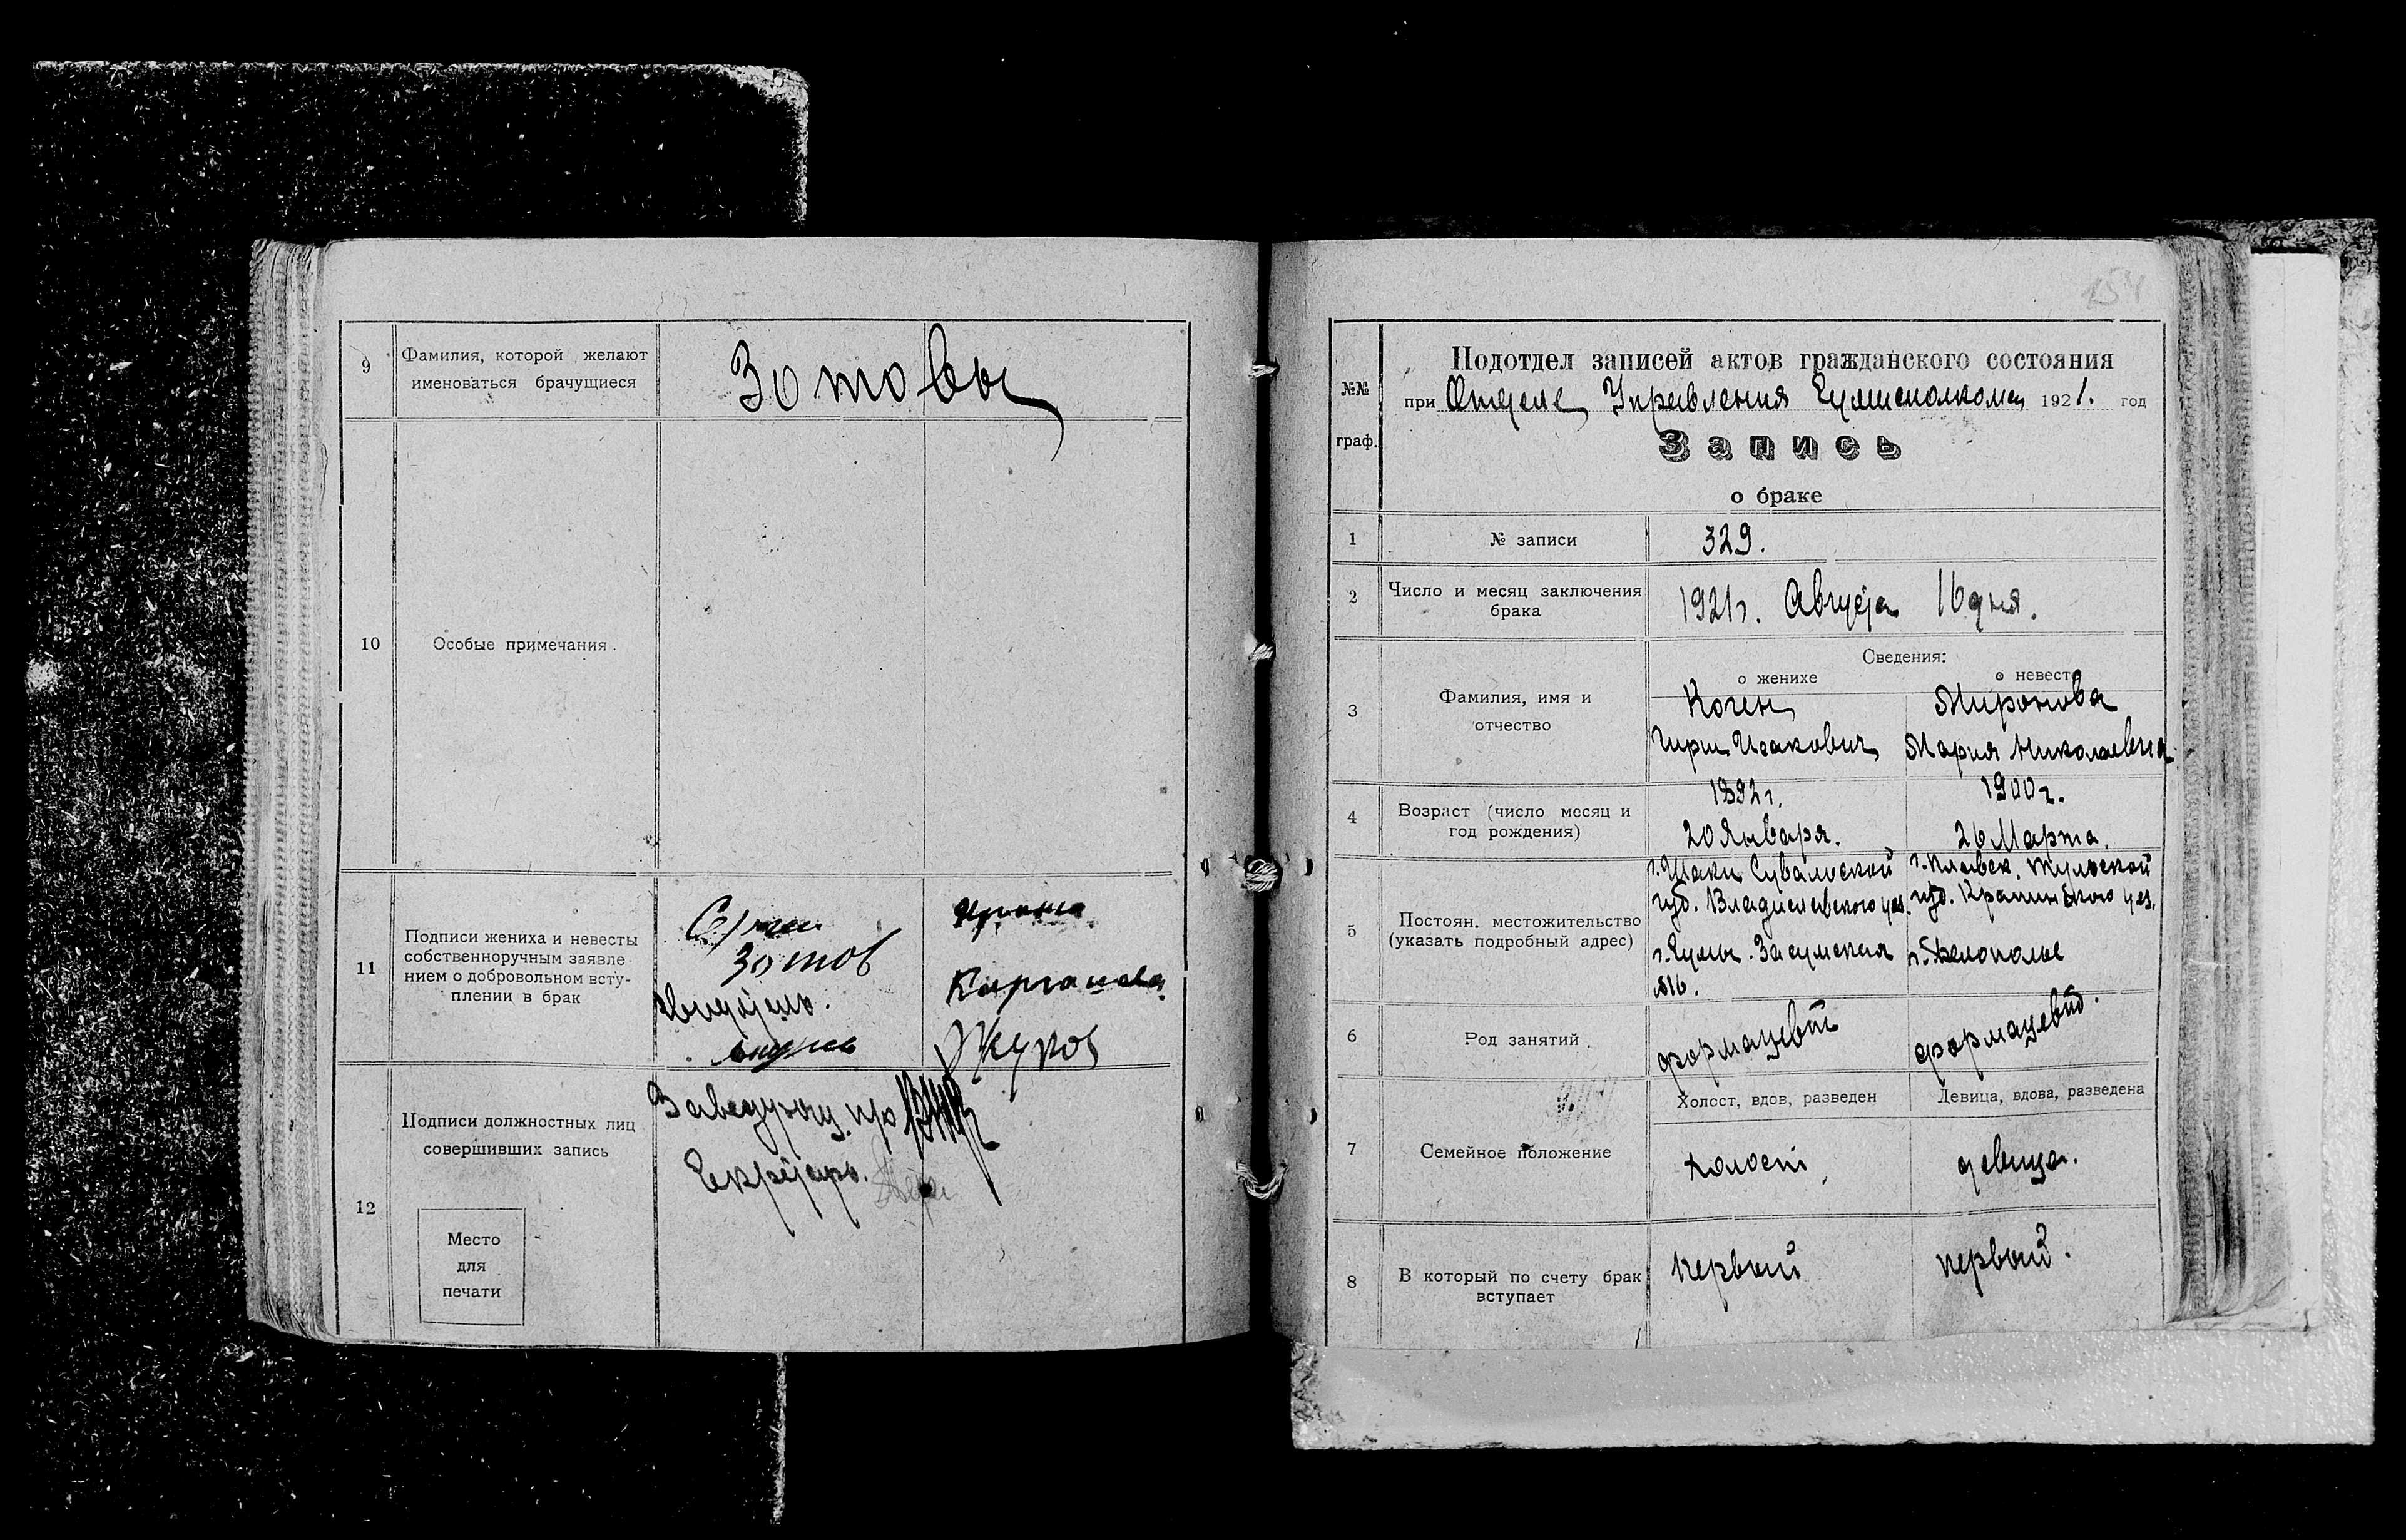 9
Фамилия, которой желают
именоваться брачущиеся
Зотовы
10
Особые примечания.
11
Подписи жениха и невесты
собственноручным заявле-
нием о добровольном всту-
плении в брак
Зотов
Жуков
12
Подписи должностных лиц
совершивших запись
Заведующ. п/о
Секретарь.
Место
для
печати
154
№№
граф.
Подотдел записей актов гражданского состояния
при Отделе Управления Сумисполкома 1921. год
Запись
о браке
1
№ записи
329.
2
Число и месяц заключения
брака
1921г. Августа 16 дня.
3
Фамилия, имя и
отчество
Сведения:
о женихе
о невесте
Коген
Гирш Исакович
Миронова
Мария Николаевна
4
Возраст (число месяц и
год рождения)
1892г.
20 Января.
1900г.
26 Марта.
5
Постоян. местожительство
(указать подробный адрес)
г. Шаки Сувальской
губ. Владиславского уез.
г. Сумы. Засумская
№16.
г. Плавск. Тульской
губ. уез.
г. Белополье
6
Род занятий.
формацевт
формацевт.
7
Семейное положение
Холост, вдов, разведен
Девица, вдова, разведена
холост
девица.
8
В который по счету брак
вступает
первый
первый.